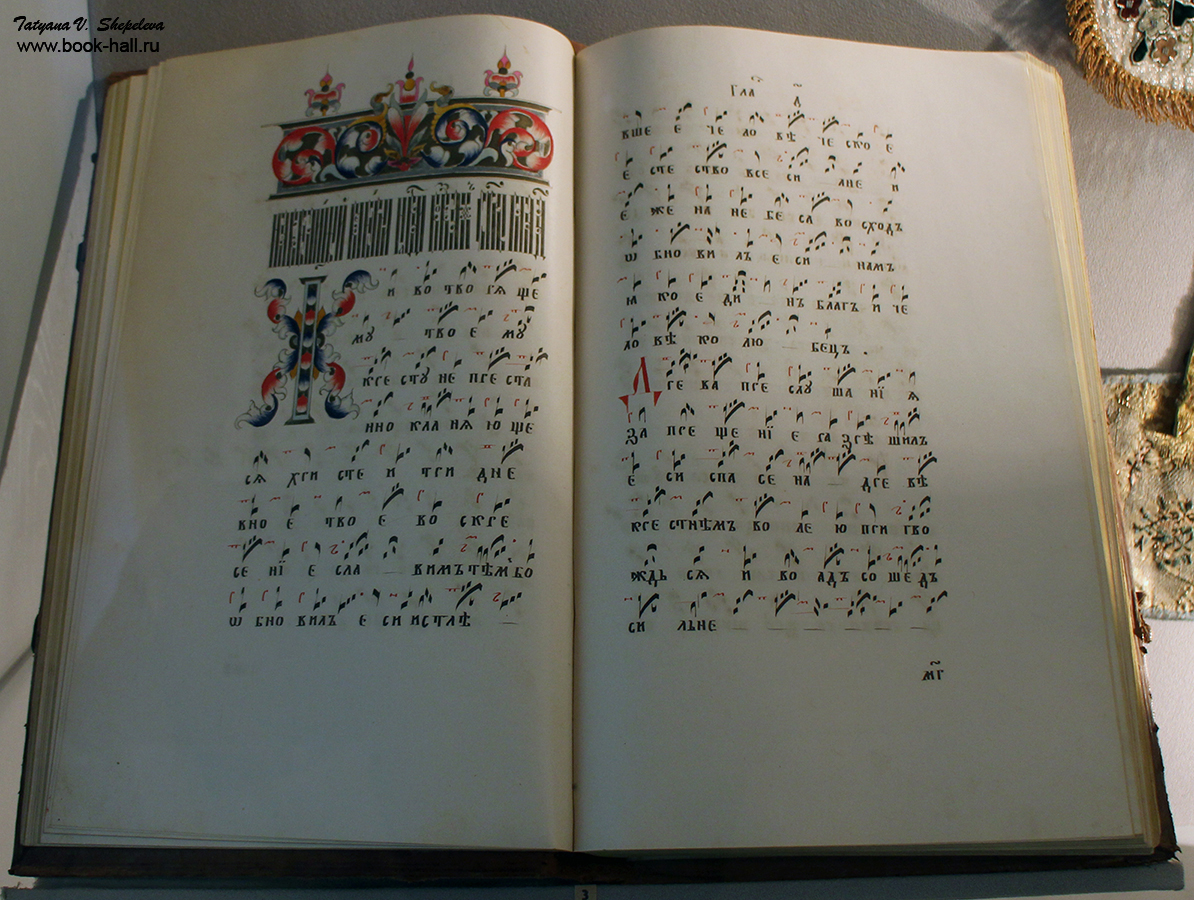 Tatyana V. Shepeleva
www.book-hall.ru
и во тво рѧ ще
мꙋ тво е мꙋ
кре стꙋ не пре ста
нно кла нѧ ю ще
сѧ хри сте и три дне
вно е тво е во скре
се нї е сла вимъ тѣм бо
ѡ бно вилъ е си истлѣ
Гла д҃
вше е че ло вѣ че ско е
е сте ство все си лне и
е же на не бе са во сходъ
ѡ бно ви лъ е си намъ
ꙗ ко е ди нъ благъ и че
ло вѣ ко лю бецъ .
Дре ва пре слꙋ ша нї ѧ
за пре ще нї е ра зрѣ шилъ
е си спа се на дре вѣ
кре стнѣмъ во ле ю при гво
ждь сѧ и во адъ со шедъ
си льне
м҃г
3